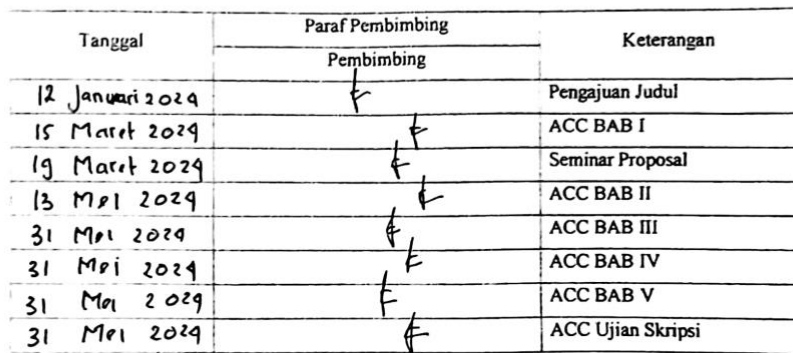 Tanggal Paraf Pembimbing Keterangan
Pembimbing
12 Januari 2024 Pengajuan Judul
15 Maret 2024 ACC BAB I
19 Maret 2024 Seminar Proposal
13 Mei 2024 ACC BAB II
31 Mei 2024 ACC BAB III
31 Mei 2024 ACC BAB IV
31 Mei 2024 ACC BAB V
31 Mei 2024 ACC Ujian Skripsi